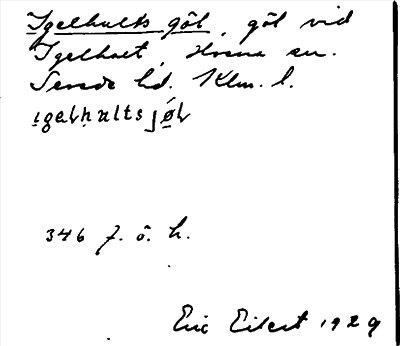 Igelhults göl, göl vid
Igelhult, Hvena sn.
Sevede hd. Klm. l.
ıgəlhultsjøl
346 f. ö. h.
Eric Eilert 1929